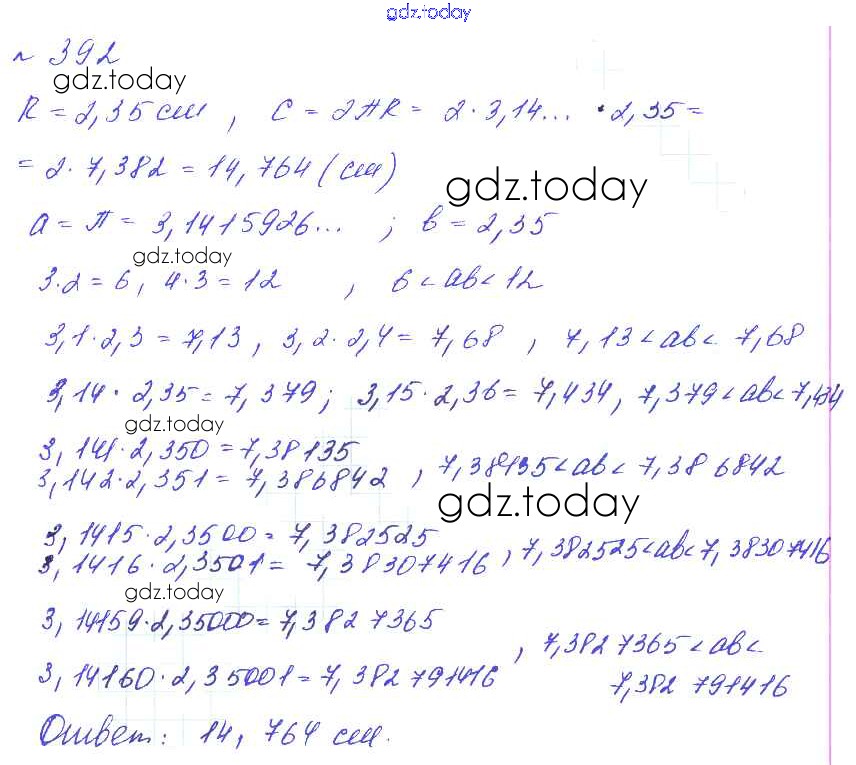 gdz.today
№ 392
gdz.today
R = 2,35 см , C = 2πR = 2·3,14... ·2,35 =
= 2·7,382 = 14,764 (см)
gdz.today
a = π = 3,1415926... ; b = 2,35
gdz.today
3·2 = 6, 4·3 = 12 , 6 < ab < 12
3,1·2,3 = 7,13 , 3,2·2,4 = 7,68 , 7,13 < ab < 7,68
3,14·2,35 = 7,379; 3,15·2,36 = 7,434, 7,379 < ab < 7,434
gdz.today
3,141·2,350 = 7,38135
3,142·2,351 = 7,386842 , 7,38135 < ab < 7,386842
gdz.today
3,1415·2,3500 = 7,382525
3,1416·2,3501 = 7,38307416 , 7,382525 < ab < 7,38307416
gdz.today
3,14159·2,35000 = 7,3827365
, 7,3827365 < ab <
3,14160·2,35001 = 7,382791416
7,382791416
Ответ: 14,764 см.